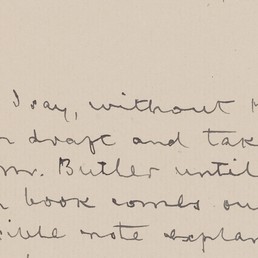 I say, without
draft and tak
mr. Butler until
book comes ou
ible note explan